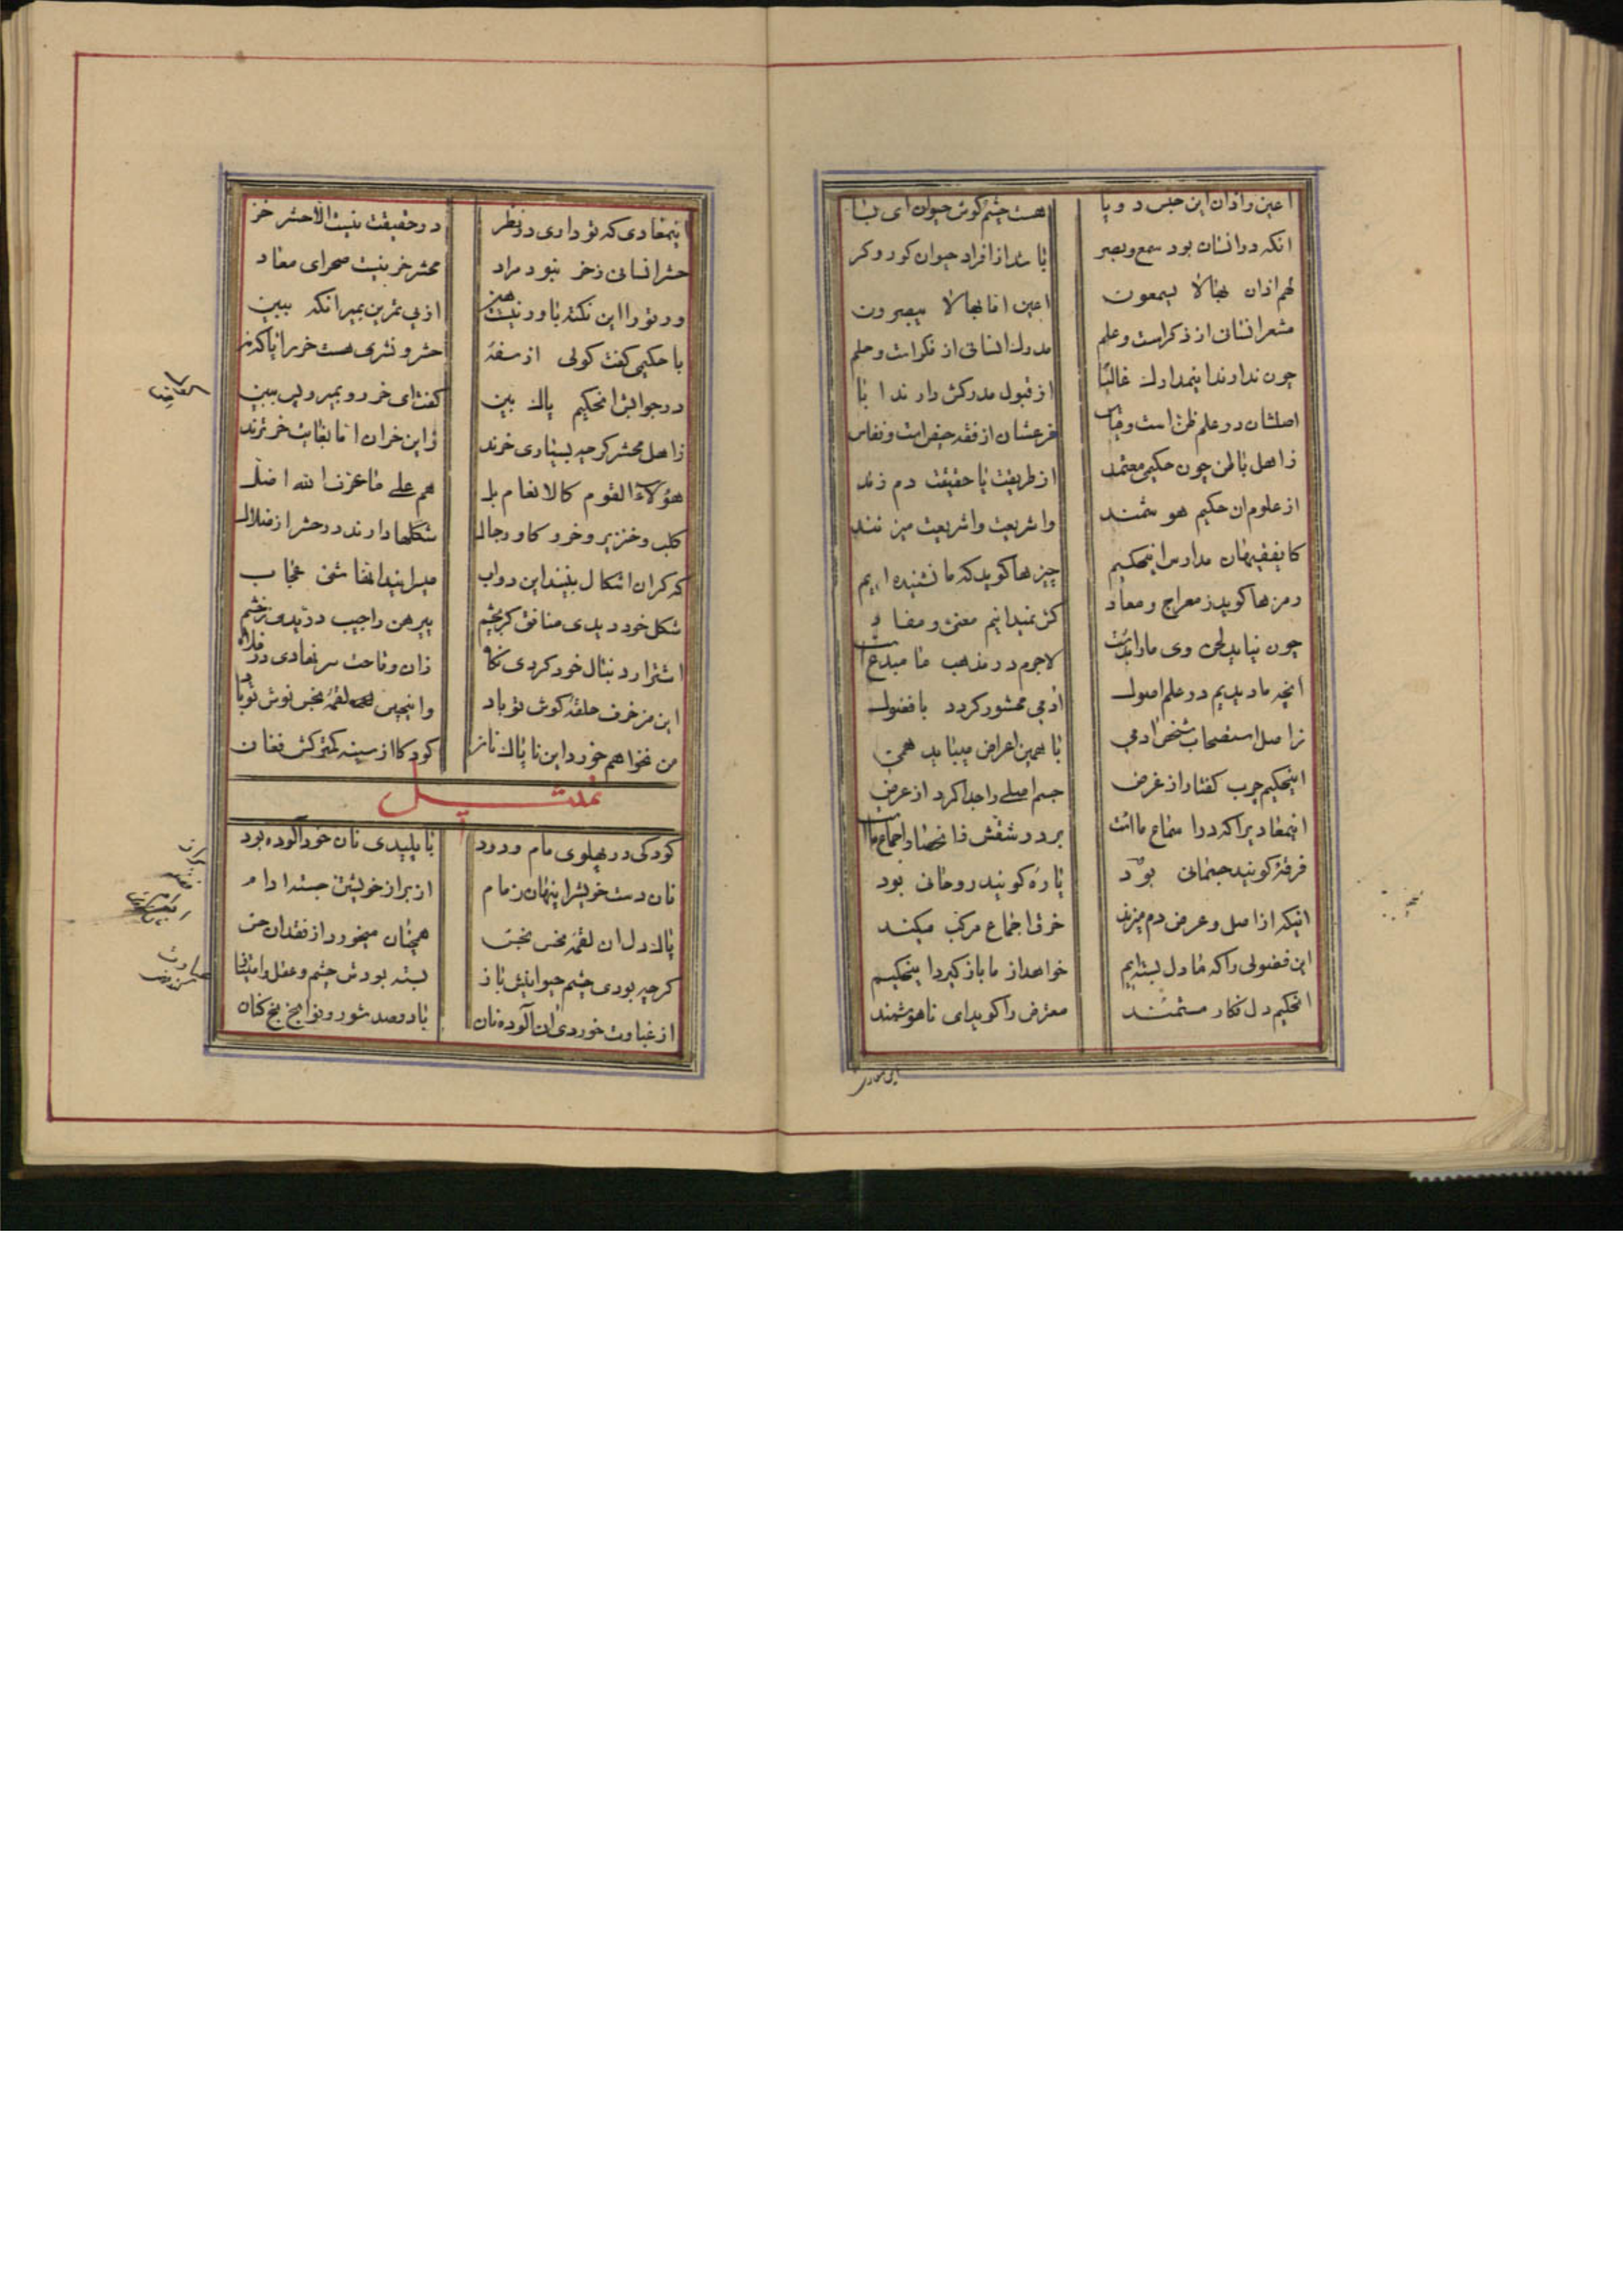 اعین و اذان این جنس دو پا
هست چشم گوش حیوان ای
آنکه در انسان بود سمع و بصر
باشد از افراد حیوان کور و کر
لهم اذان بها لا یسمعون
اعین اما بها لا یبصرون
مشعر انسانی از ذکر است و علم
مدرک انسانی از فکر است و حلم
چون ندارند اینمدارک غالبًا
از قبول مدرکش دارند ابا
اصلشان در علم ظن است و قیاس
فرعشان از فقه حیض است و نفاس
ز اهل باطن چون حکیمی معتمد
از طریقت یا حقیقت دم زند
از علوم ان حکیم هوشمند
وا شریعت وا شریعت میزنند
کایفقیهان مدارس اینحکیم
چیزها کوید که ما نشنیده ایم
رمزها کوید ز معراج و معاد
کش نمیدانیم معنی و مفاد
چون نیاید لحن وی ما را بدست
لاجرم در مذهب ما مبدع است
آنچه ما دیدیم در علم اصول
ادمی محشور کردد با فضول
ز اصل استصحاب شخص ادمی
با همین اعراض میباید همی
اینحکیم چرب کفتار از غرض
جسم اصلی را جدا کرد از عرض
اینمعادیرا که در اسماع ماست
بر دو شقش انحصار اجماع ما
فرقهٔ کویند جسمانی بود
پارهٔ کویند روحانی بود
اینکه از اصل و عرض دم میزند
خرق اجماع مرکب میکند
این فضولی را که ما دل بسته ایم
خواهد از ما باز کیرد اینحکیم
انحکیم دل فکار مستمند
معترض را کوید ای ناهوشمند
اینمعادی که تو داری در نظر
در حقیقت نیست الا حشر خر
حشر انسانی ز خر نبود مراد
محشر خر نیست صحرای معاد
ور تو را این نکته باور نیست هین
از پی تمرین بمیر آنکه ببین
با حکیمی کفت کولی از سفه
حشر و نشری هست خر را یا که نه
در جوابش انحکیم پاک بین
کفت ای خر رو بمیر و پس ببین
ز اهل محشر کرچه بسیاری خرند
زاین خران اما بغایت خرترند
هؤلاء القوم کالانعام بل
هم علی ما عرف الله اضل
کلب و خنزیر و خر و کاو و رجال
شکلها دارند در حشر از ضلال
که کر ان اشکال بینند این دواب
شکل خود دیدی منافق کر بچشم
پیرهن را جیب دریدی ز خشم
اشترا ر دنبال خود کردی نکاه
زان وقاحت سر نهادی در فلاه
این مزخرف حلقهٔ کوش تو باد
و اینچنین لقمهٔ نجس نوش تو باد
من نخواهم خورد این ناپاک نان
کودکا از سینه کمتر کش فغان
تمثیل
کودکی در پهلوی مام ودود
با پلیدی نان خود آلوده بود
نان دست خویشرا پنهان ز مام
از براز خویشتن جسته ادام
پاک دل ان لقمهٔ نحس نجس
همچنان میخورد از فقدان حس
کرچه بودی چشم حیوانیش باز
بسته بودش چشم و عقل و امتیاز
از غباوت خوردی ان آلوده نان
با دوصد شور و نوا بخ بخ کنان